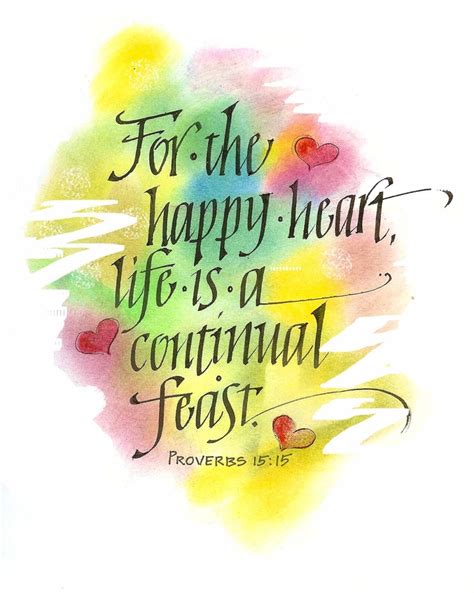 For·the
happy·heart,
life·is·a
continual
feast.
PROVERBS 15:15